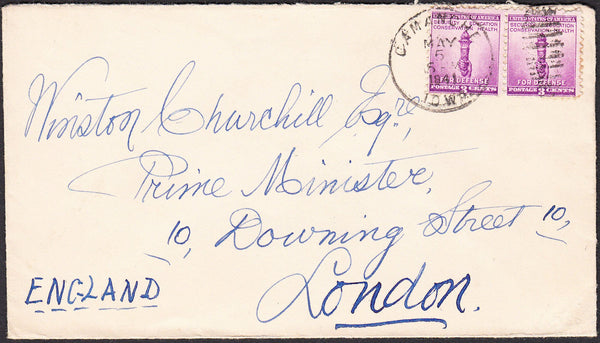 CAMANCHE
MAY
5
IOWA
UNITED STATES OF AMERICA UNITED STATES OF AMERICA
SECURITY EDUCATION CONSERVATION HEALTH
FOR DEFENSE FOR DEFENSE
POSTAGE 3 CENTS POSTAGE 3 CENTS
Winston Churchill Esqre,
Prime Minister,
10, Downing Street 10,
London.
ENGLAND